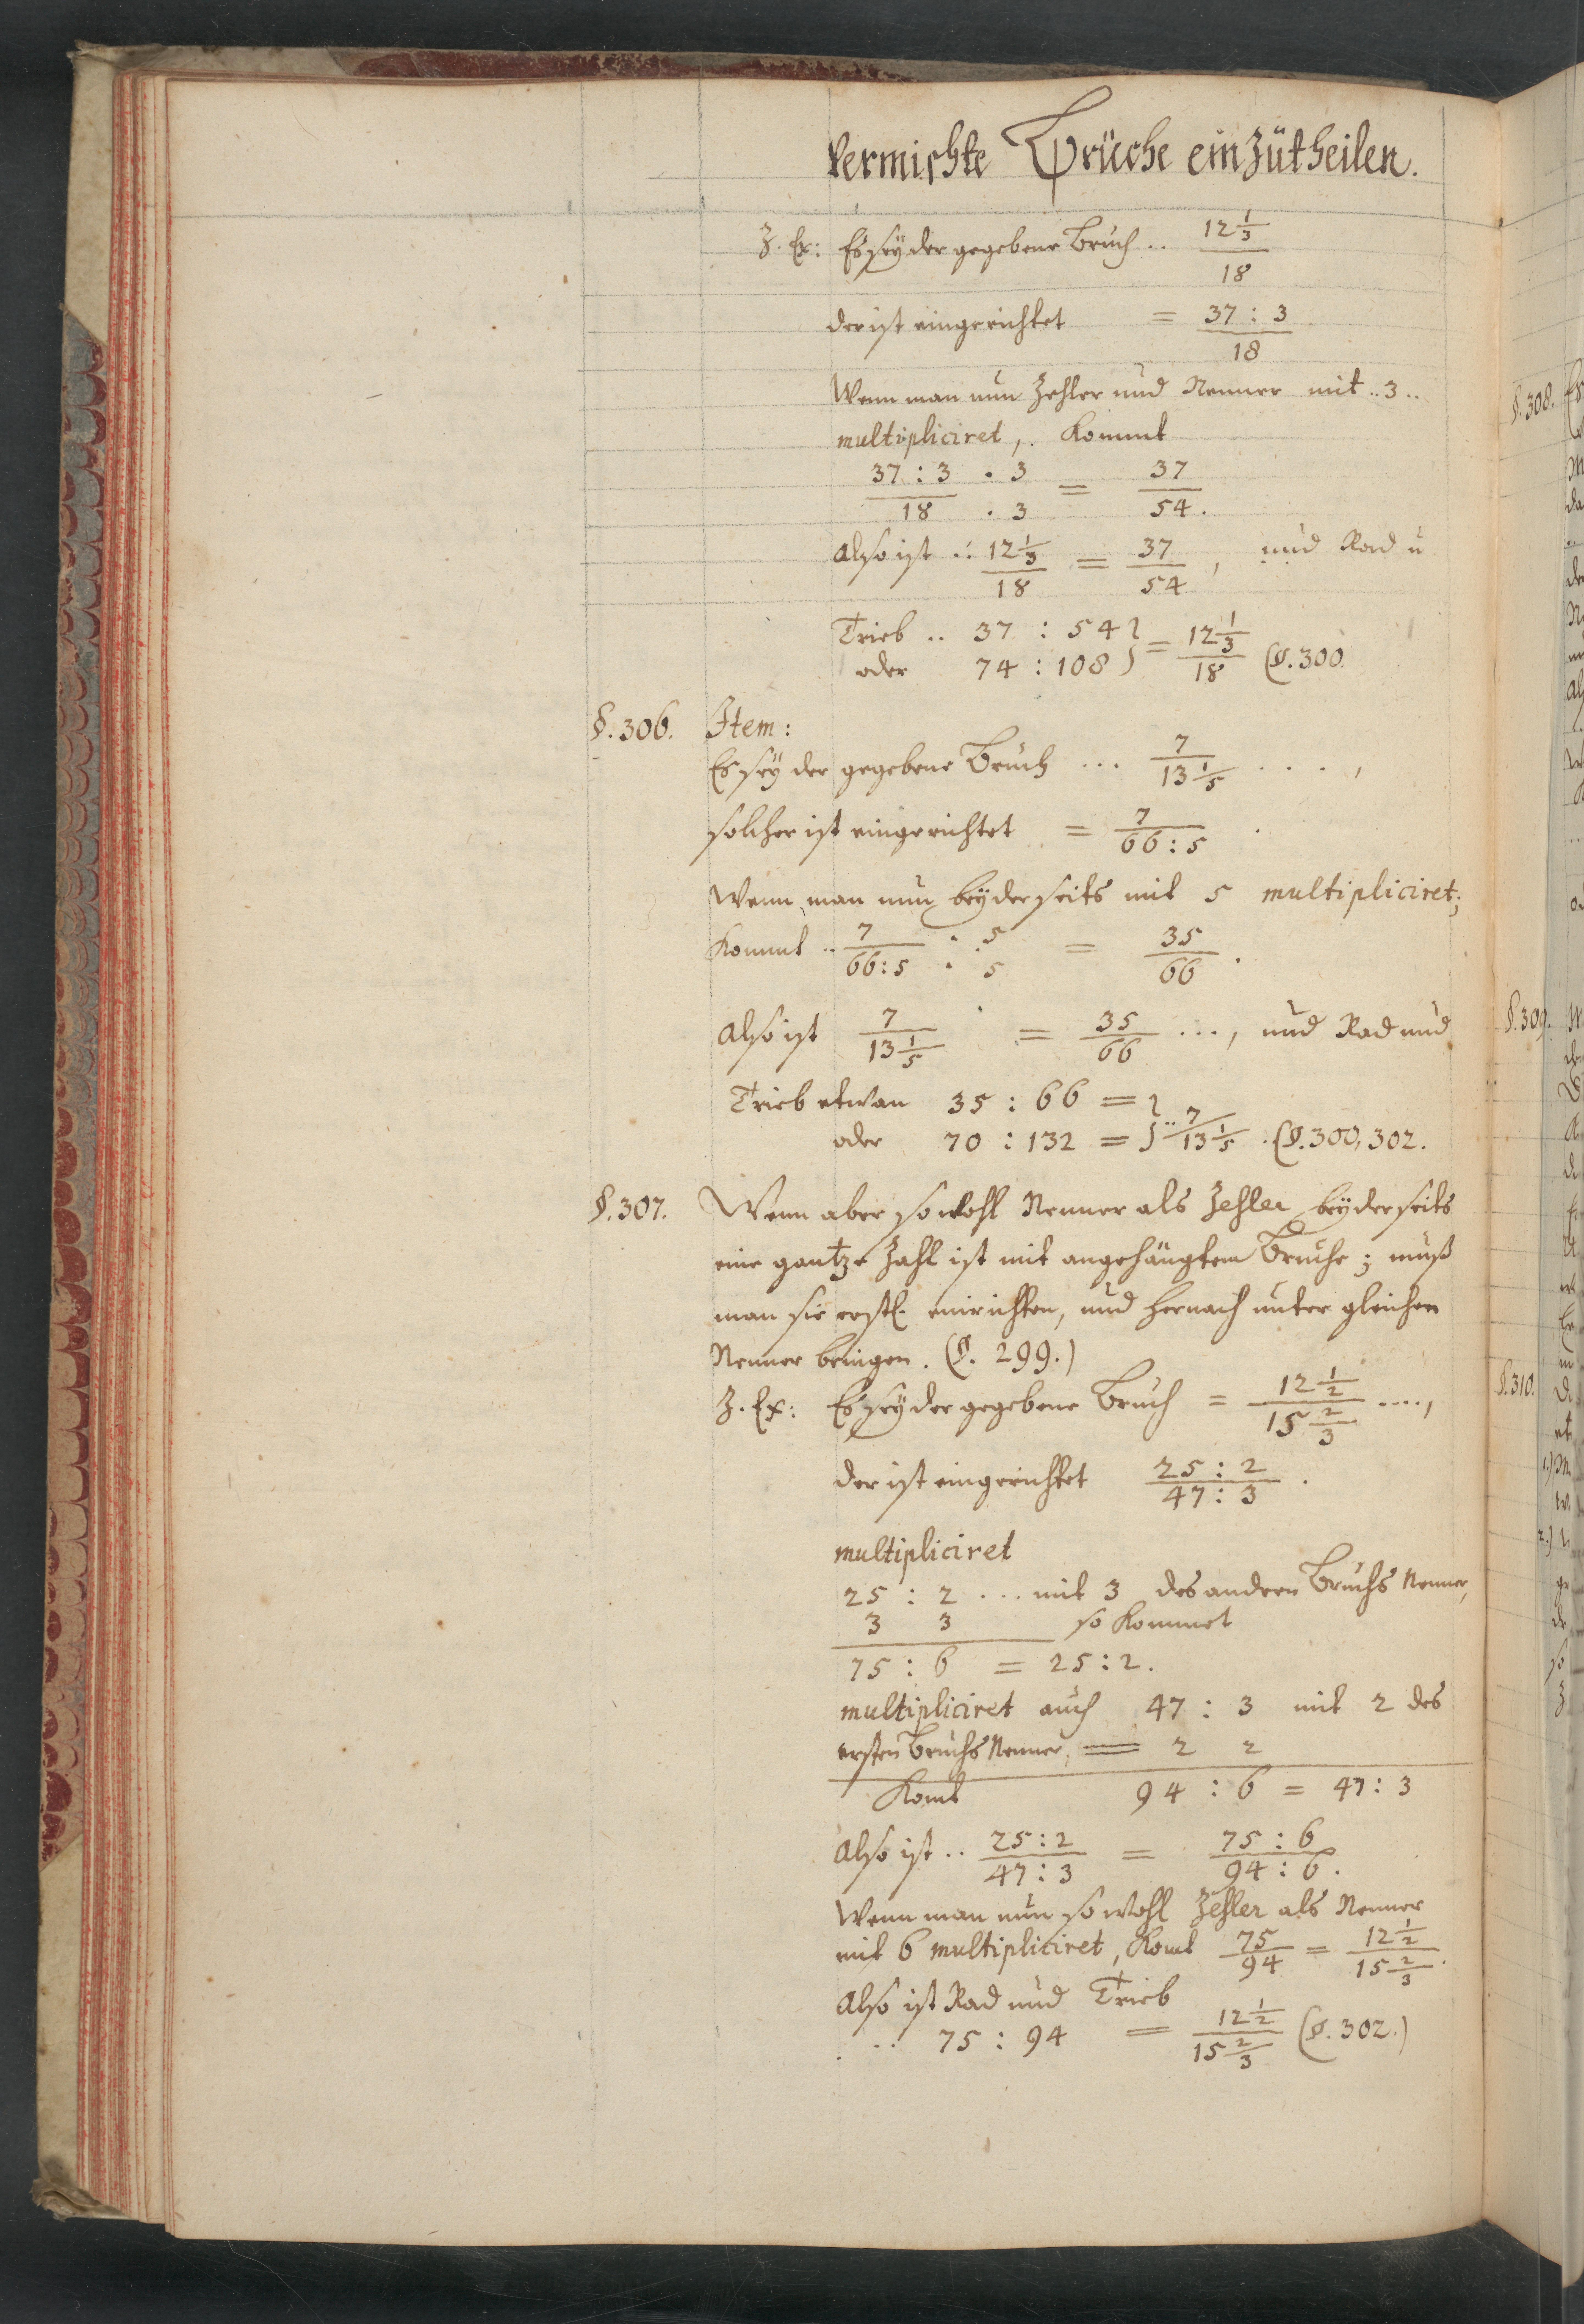 vermischte Brüche einzütheilen.
Z. Ex: Es seÿ der gegebene Bruch .. 12 1/3 / 18
der ist eingerichtet = 37 : 3 / 18
Wenn man nun Zehler und Nenner mit .. 3 ..
multipliciret, . kommt
37 : 3 . 3 / 18 . 3 = 37 / 54.
Also ist .: 12 1/3 / 18 = 37 / 54, und Rad u
Trieb .. 37 : 54 } = 12 1/3 / 18 (§. 300.
oder 74 : 108 }
§. 306. Item:
Es seÿ der gegebene Bruch ... 7 / 13 1/5 . . . . ,
solcher ist eingerichtet = 7 / 66 : 5 .
Wenn man nun beÿderseits mit 5 multipliciret;
kommt .. 7 / 66 : 5 . 5 / . 5 = 35 / 66 .
Also ist 7 / 13 1/5 = 35 / 66 ..., und Rad und
Trieb etwan 35 : 66 = }
oder 70 : 132 = } .. 7 / 13 1/5 . (§. 300, 302.
§. 307. Wenn aber sowohl Nenner als Zehler beÿderseits
eine gantze Zahl ist mit angehängtem Bruche; muß
man sie erstl. einrichten, und hernach unter gleichen
Nenner bringen. (§. 299.)
Z. Ex: Es seÿ der gegebene Bruch = 12 1/2 / 15 2/3 ....,
der ist eingerichtet 25 : 2 / 47 : 3 .
multipliciret
25 : 2 ... mit 3 des andern Bruchs Nenner,
3 3 so kommet
75 : 6 = 25 : 2.
multipliciret auch 47 : 3 mit 2 des
ersten Bruchs Nenner, = 2 2
Komt 94 : 6 = 47 : 3
Also ist .. 25 : 2 / 47 : 3 = 75 : 6 / 94 : 6.
Wenn man nun sowohl Zehler als Nenner
mit 6 multipliciret, komt 75 / 94 = 12 1/2 / 15 2/3 .
Also ist Rad und Trieb
. .. 75 : 94 = 12 1/2 / 15 2/3 (§. 302.)
§. 308.
§. 309.
§. 310.